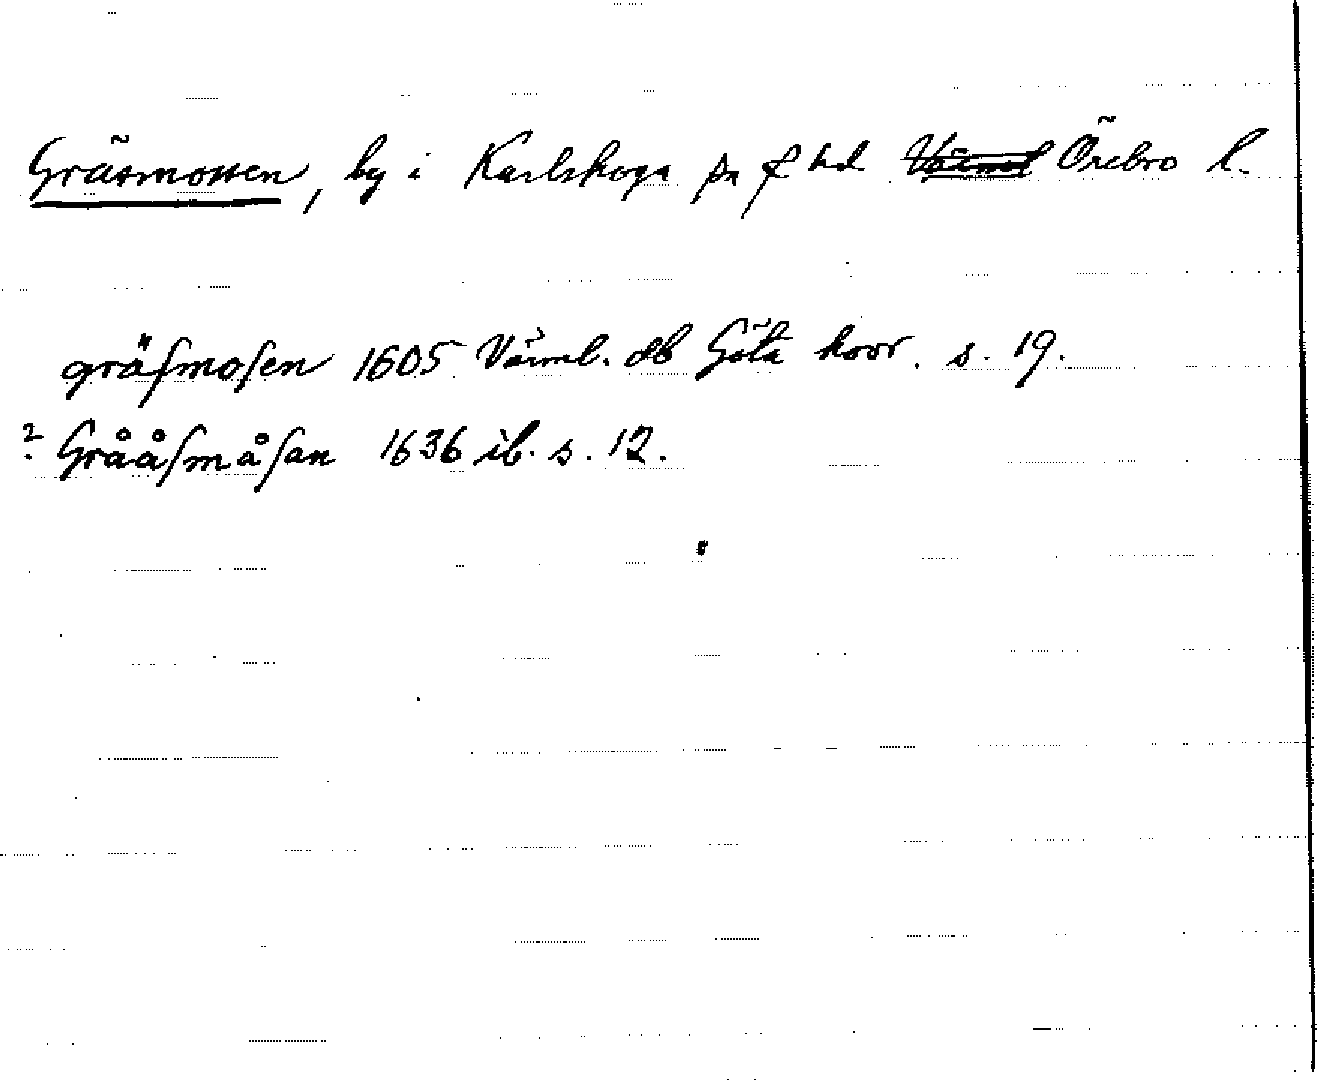 Gräsmossen, by i Karlskoga sn o hd Värml Örebro l.
gräſmoſen 1605 Värml. db Göta hovr. s. 19.
? Grååſmåſan 1636 ib. s. 12.